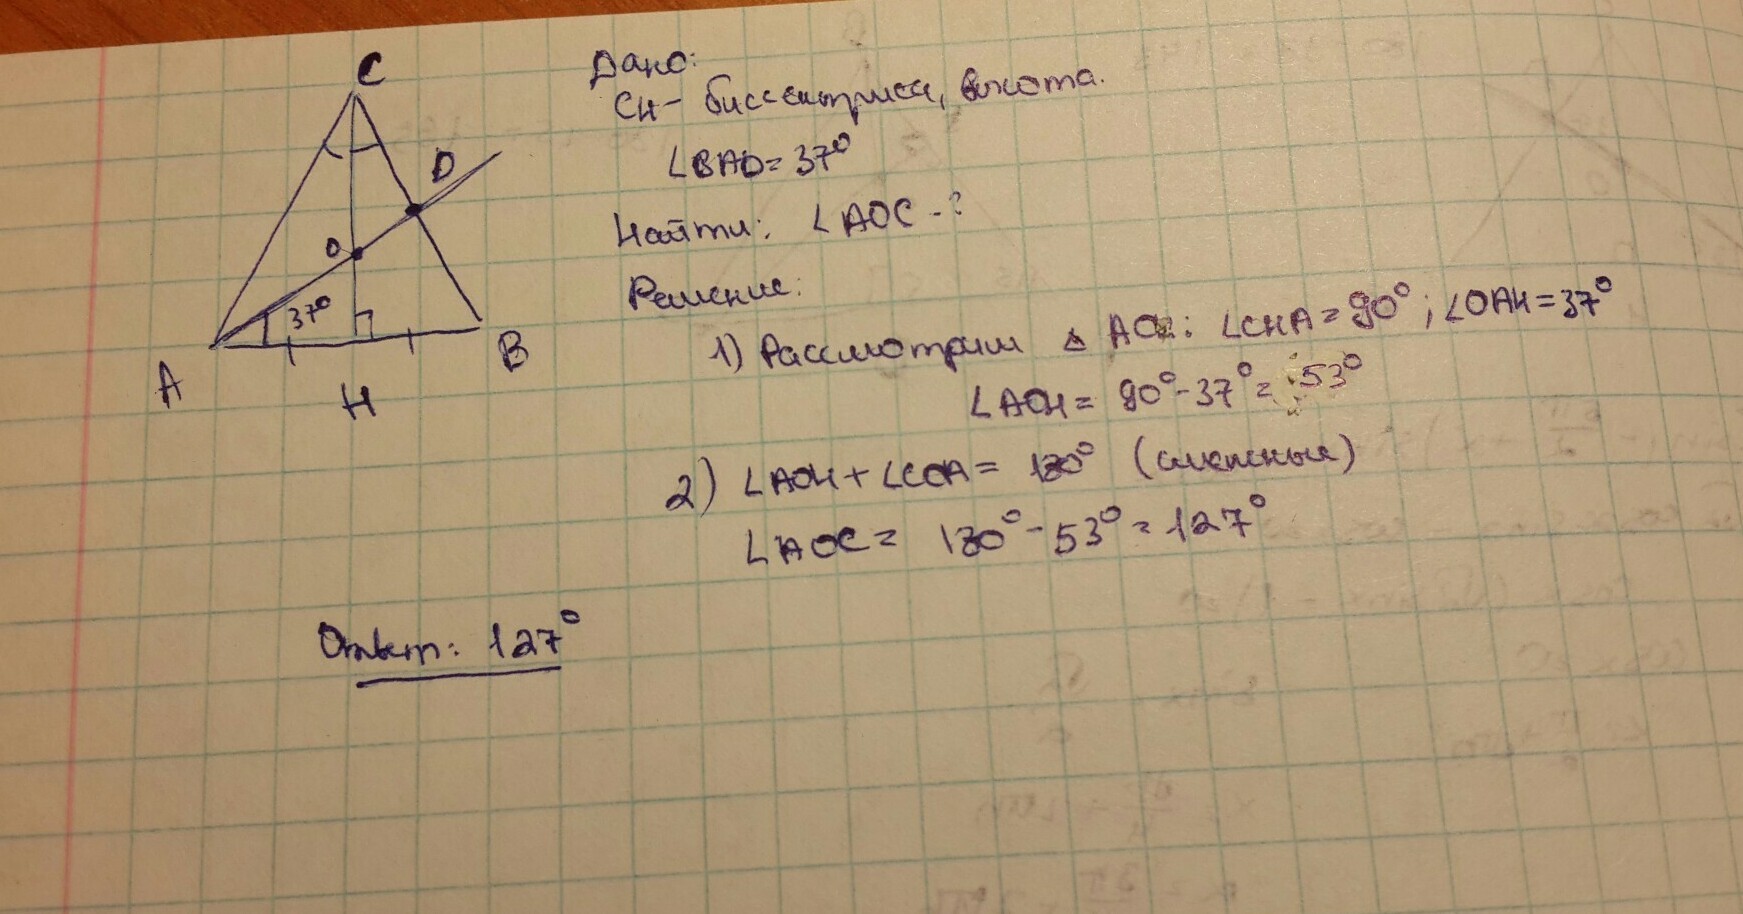 C
D
O
37°
A
H
B
Дано:
CH - биссектриса, высота.
∠BAD = 37°
Найти: ∠AOC - ?
Решение:
1) Рассмотрим △ : ∠CHA = 90°; ∠OAH = 37°
∠AOH = 90° - 37° = 53°
2) ∠AOH + ∠COA = 180° (смежные)
∠AOC = 180° - 53° = 127°
Ответ: 127°